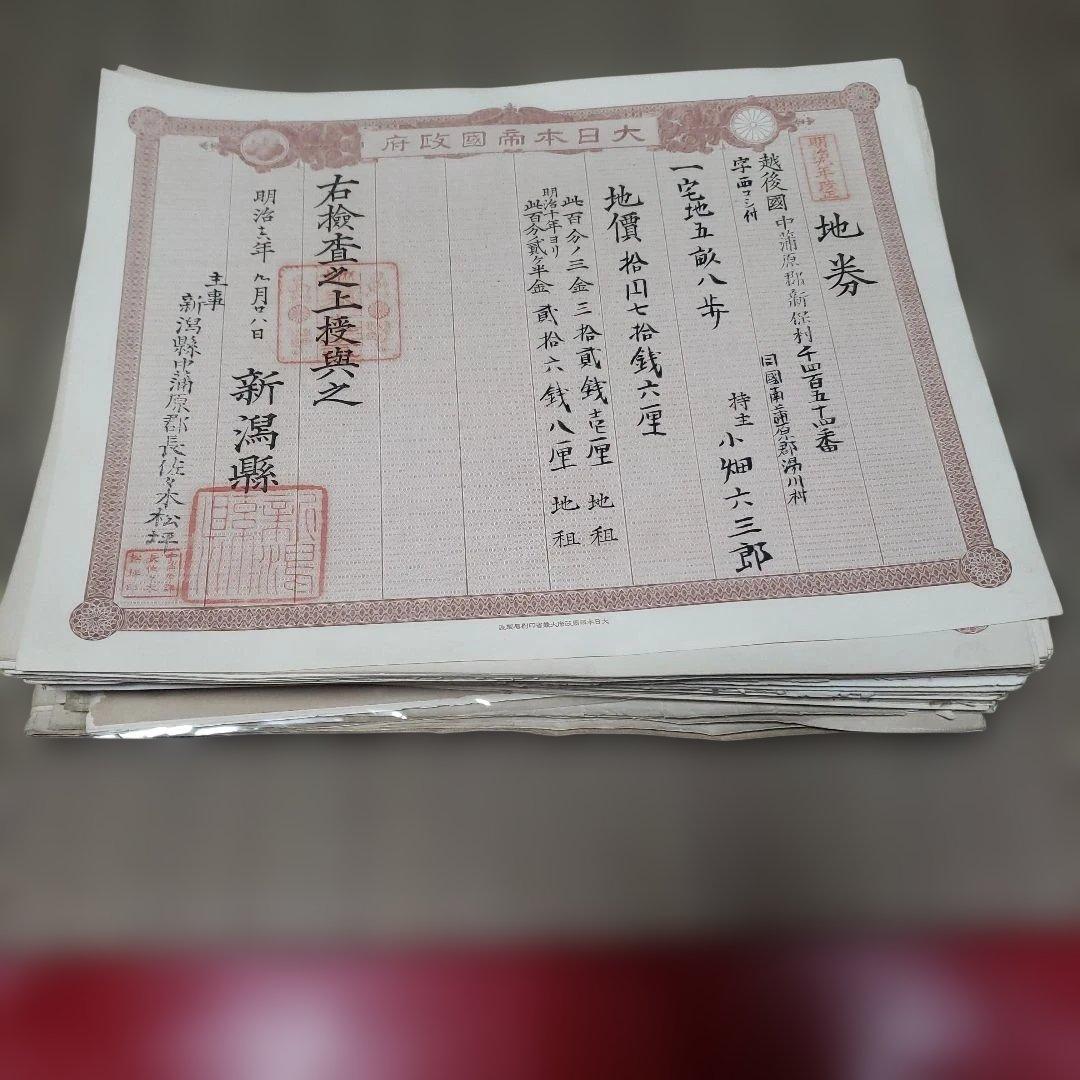 大日本帝國政府
地券
越後國中蒲原郡新保村千四百五十四番
字西マシ付
同國南蒲原郡湯川村
持主 小畑六三郎
一宅地五畝八歩
地價拾円七拾銭六厘
此百分ノ三金三拾貳銭壱厘 地租
明治十年ヨリ
此百分ノ貳ケ半金貳拾六銭八厘 地租
右檢査之上授與之
明治十六年九月廿八日
新潟縣
主事
新潟縣中蒲原郡長佐々木松坪
大日本帝國政府大藏省印刷局製造